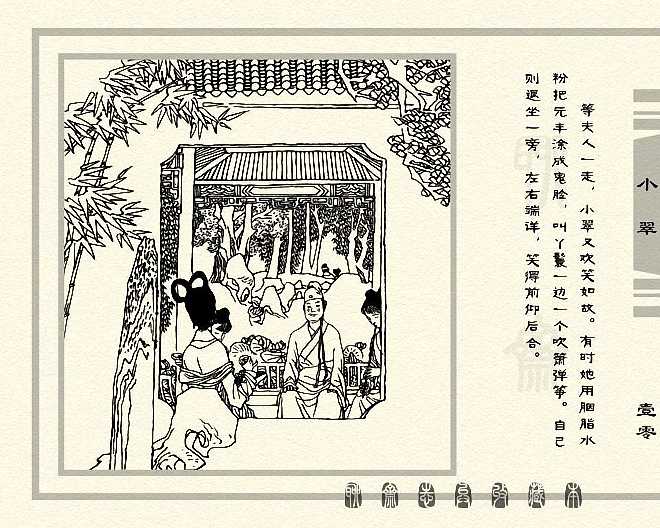 等夫人一走，小翠又欢笑如故。有时她用胭脂水
粉把元丰涂成鬼脸，叫丫鬟一边一个吹箫弹筝。自己
则退坐一旁，左右端详，笑得前仰后合。
小翠
壹零